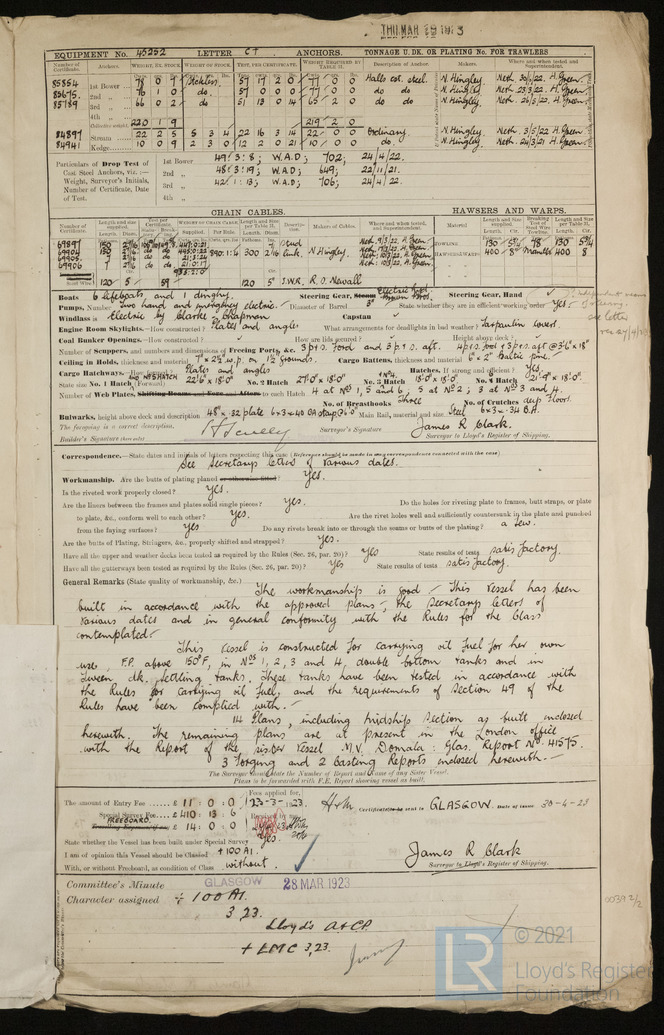 THU MAR 29 1923
EQUIPMENT No. 45252 LETTER C† ANCHORS. TONNAGE U. DK. OR PLATING No. FOR TRAWLERS
Number of Certificate. Anchors. WEIGHT, EX. STOCK. WEIGHT OF STOCK. TEST, PER CERTIFICATE. WEIGHT REQUIRED BY TABLE 31. Description of Anchor. Makers. Where and when tested and Superintendent.
85854 1st Bower 78 0 7 Stockless. 57 17 2 0 77 0 0 Halls cst. steel. N. Hingley. Neth. 30/5/22. H. Green.
85675. 2nd „ 76 1 0 do. 57 0 0 0 77 0 0 do do N. Hingley. Neth. 23/3/22. H. Green.
85789 3rd „ 66 0 2 do 51 13 0 14 65 2 0 do do N. Hingley. Neth. 26/5/22. H. Green.
4th „
220 1 9 219 2 0
84897 Stream 22 2 5 5 3 4 22 16 3 14 22 0 0 Ordinary. N. Hingley. Neth. 3/5/22 H. Green
84941 Kedge 10 0 9 2 3 0 12 2 0 21 10 0 0 do. N. Hingley. Neth. 24/3/21 H. Green.
Particulars of Drop Test of Cast Steel Anchors, viz. :— Weight, Surveyor's Initials, Number of Certificate, Date of Test.
1st Bower 49: 3: 8; W.A.D; 702; 24/4/22.
2nd „ 48: 3: 19; W.A.D; 649; 22/11/21.
3rd „ 42: 1: 13; W.A.D; 706; 24/4/22.
4th „
CHAIN CABLES. HAWSERS AND WARPS.
Number of Certificate. Length and size supplied. Test per Certificate. WEIGHT OF CHAIN CABLE. Length and Size per Table 31. Description. Makers of Cables. Where and when tested, and Superintendent. Material Length and size supplied. Breaking Test of Steel Wire Towline. Length and size per Table 31.
69897 150 2 7/16 Stud Neth. 9/3/22 H. Green
69904 150 300 2 7/16 Link N. Hingley. TOWLINE 130 5 3/4 78 130 5 3/4
69905 HAWSERS & WARPS 400 8 Manila 400 8
69906
Steel Wire 120 5 59 120 5 S.W.R. R. O. Newall
Boats 6 lifeboats, and 1 dinghy. Steering Gear, Steam Electric Hyd. Brown Bros. Steering Gear, Hand
Pumps, Number Two hand and emergency electric. Diameter of Barrel 3" State whether they are in efficient working order Yes.
Windlass is Electric by Clarke, Chapman Capstan
Engine Room Skylights.—How constructed? Plates and angles What arrangements for deadlights in bad weather? Tarpaulin covers.
Coal Bunker Openings.—How constructed? How are lids secured? Height above deck?
Number of Scuppers, and numbers and dimensions of Freeing Ports, &c. 3 p & s. Ford and 3 p & s. aft. 4 p & s ford & 3 p & s. aft @ 3'6" x 18"
Ceiling in Holds, thickness and material 7" x 2½" w.p. on 1½" grounds. Cargo Battens, thickness and material 6" x 2" Baltic pine.
Cargo Hatchways.—How formed? Plates and angles Hatches, If strong and efficient? Yes.
State size No. 1 Hatch (Forward) 22'6" x 18'0" No. 2 Hatch 27'0" x 18'0" No. 3 Hatch 18'0" x 18'0" No. 4 Hatch 21'9" x 18'0"
Number of Web Plates, to each Hatch 4 at Nos 1, 5 and 6; 5 at No 2; 3 at No 3 and 4.
No. of Breasthooks Three No. of Crutches deep floors.
Bulwarks, height above deck and description 48" x .32 plate 6 x 3 x 40 Main Rail, material and size Steel 6 x 3 x .34 B.A.
The foregoing is a correct description,
Builder's Signature (here only) Surveyor's Signature James R Clark.
Surveyor to Lloyd's Register of Shipping.
Correspondence.—State dates and initials of letters respecting this case (References should be made in any correspondence connected with the case)
See Secretarys letters of various dates.
Workmanship. Are the butts of plating planed or otherwise fitted? Yes.
Is the riveted work properly closed? Yes.
Are the liners between the frames and plates solid single pieces? Yes. Do the holes for riveting plate to frames, butt straps, or plate
to plate, &c., conform well to each other? Yes. Are the rivet holes well and sufficiently countersunk in the plate and punched
from the faying surfaces? Yes Do any rivets break into or through the seams or butts of the plating? a few.
Are the butts of Plating, Stringers, &c., properly shifted and strapped? Yes.
Have all the upper and weather decks been tested as required by the Rules (Sec. 26, par. 20)? Yes State results of tests satisfactory.
Have all the gutterways been tested as required by the Rules (Sec. 26, par. 20)? Yes State results of tests satisfactory.
General Remarks (State quality of workmanship, &c.)
The workmanship is good — This vessel has been
built in accordance with the approved plans, the Secretarys letters of
various dates and in general conformity with the Rules for the Class
contemplated.—
This vessel is constructed for carrying oil fuel for her own
use, F.P. above 150°F, in Nos 1, 2, 3 and 4, double bottom tanks and in
tween dk. settling tanks. These tanks have been tested in accordance with
the Rules for carrying oil fuel, and the requirements of Section 49 of the
Rules have been complied with.—
14 Plans, including midship section as built enclosed
herewith. The remaining plans are at present in the London office
with the Report of the sister vessel M.V. Domala. Glas. Report No. 41575.
3 Forging and 2 Casting Reports enclosed herewith.—
The Surveyor should state the Number of Report and Name of any Sister Vessel.
Plans to be forwarded with F.E. Report showing vessel as built.
The amount of Entry Fee £ 11 : 0 : 0 Fees applied for, 23-3-1923.
Special Survey Fee £ 410 : 13 : 6 Received by me,
FREEBOARD. £ 14 : 0 : 0
Certificate to be sent to GLASGOW. Date of issue 30-4-23
State whether the Vessel has been built under Special Survey Yes.
I am of opinion this Vessel should be Classed +100 A1.
With, or without Freeboard, as condition of Class without.
James R Clark
Surveyor to Lloyd's Register of Shipping.
Committee's Minute GLASGOW 28 MAR 1923
Character assigned + 100 A1.
3,23.
Lloyd's A & C.P.
+ LMC 3,23.
0039 2/2
LR
© 2021
Lloyd's Register
Foundation